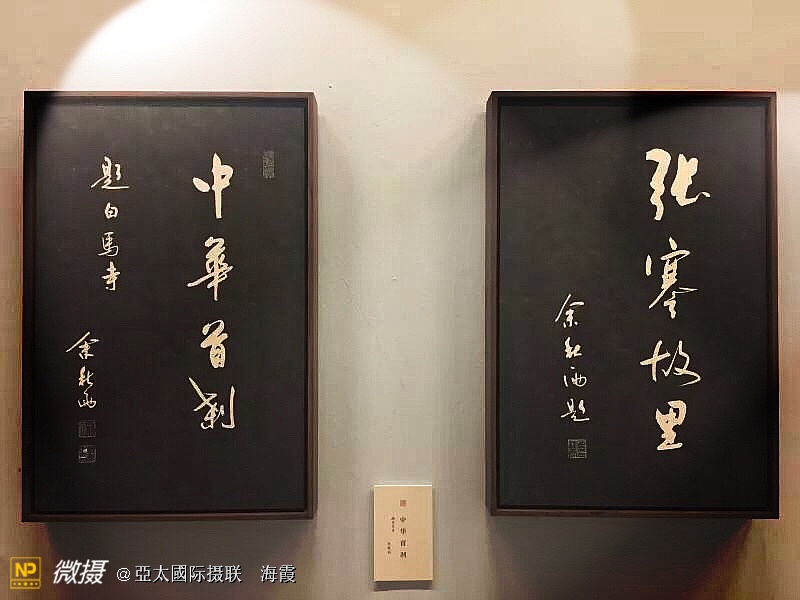 中華首刹
题白馬寺
余秋雨
张骞故里
余秋雨题
中华首刹
NP 微摄 @亞太國际摄联 海霞